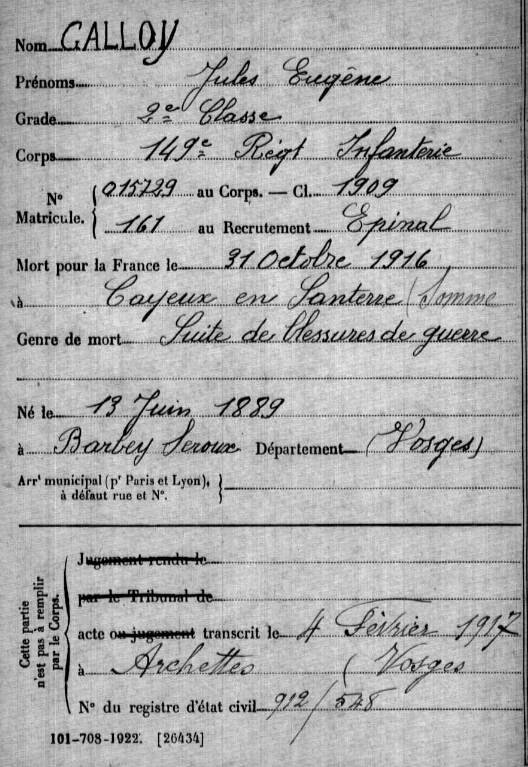 Nom GALLOY
Prénoms Jules Eugène
Grade 2e Classe
Corps 149e Régt Infanterie
N° Matricule. { 015729 au Corps. — Cl. 1909
161 au Recrutement Epinal
Mort pour la France le 31 Octobre 1916
à Cayeux en Santerre (Somme
Genre de mort Suite de blessures de guerre
Né le 13 Juin 1889
à Barbey Seroux Département (Vosges)
Arrt municipal (pr Paris et Lyon), }
à défaut rue et N°.
Cette partie
n'est pas à remplir
par le Corps.
Jugement rendu le
par le Tribunal de
acte ou jugement transcrit le 4 Février 1917
à Archettes (Vosges
N° du registre d'état civil 912/548
101-708-1922. [26434]